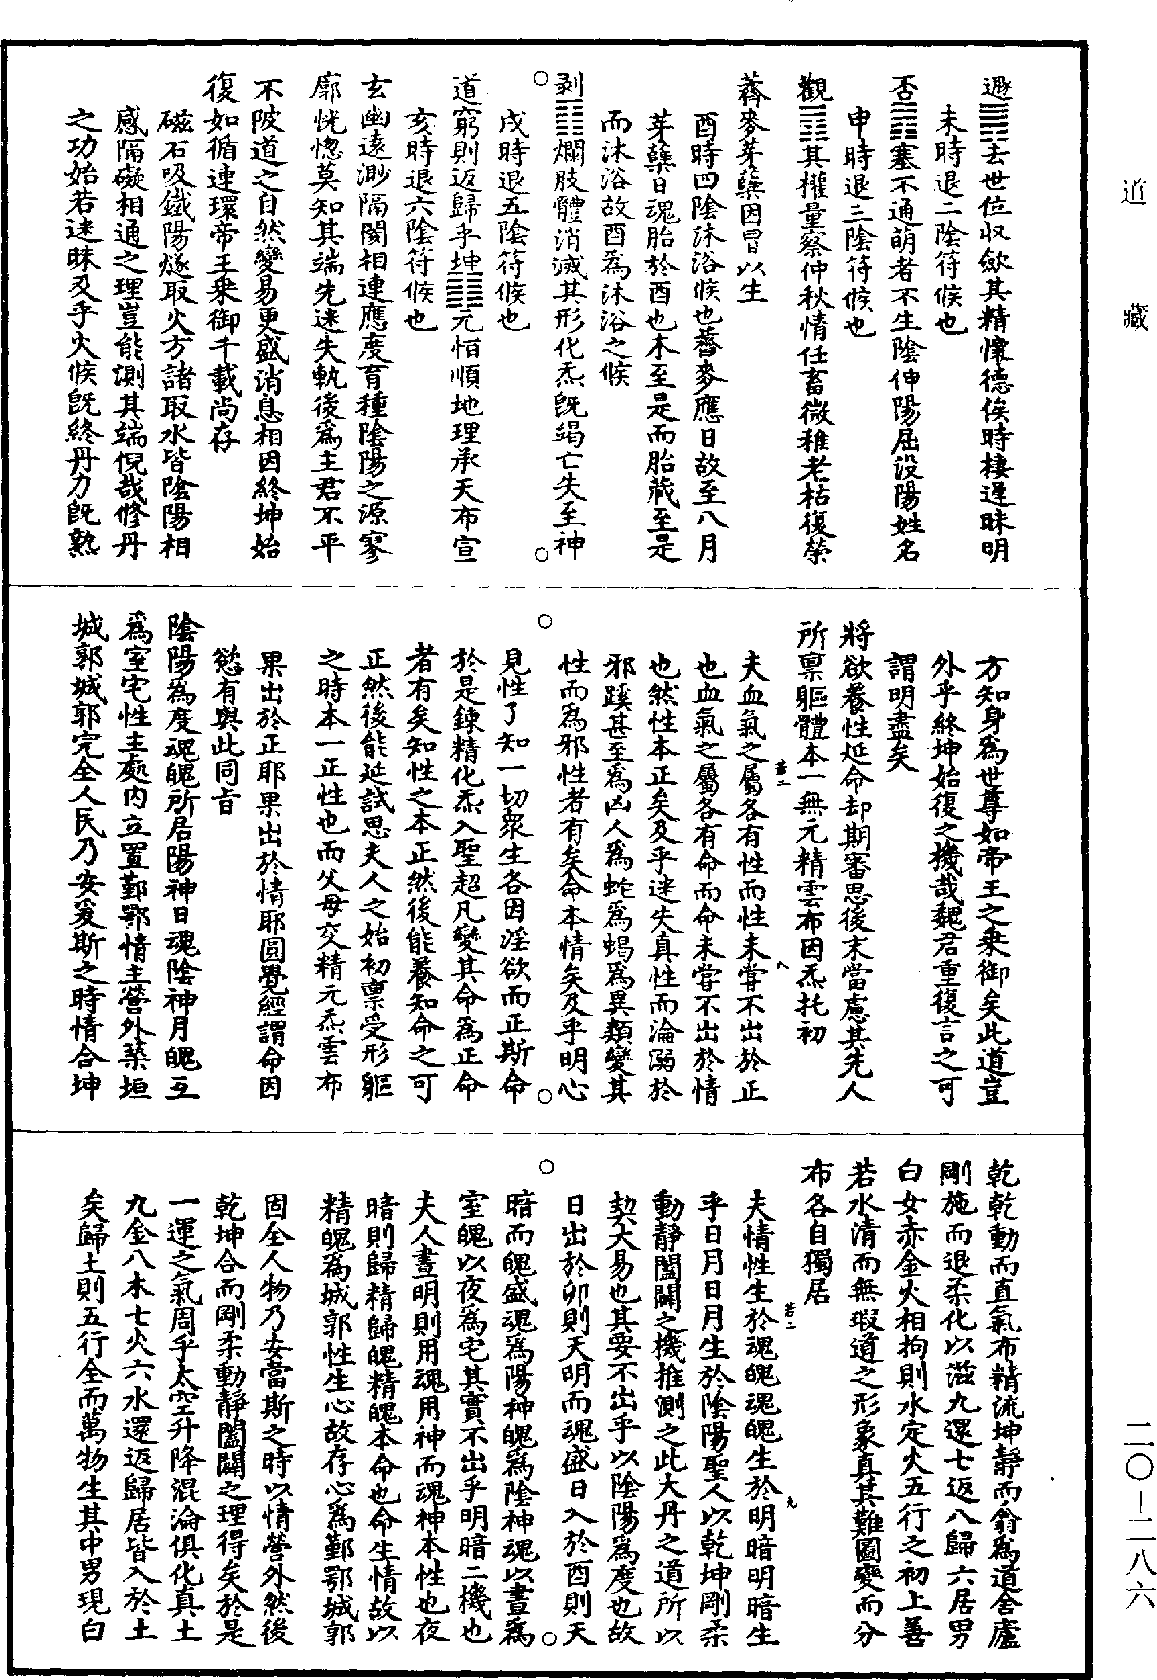 道藏
遯䷠去世位収斂其精懷德俟時棲遲昧明
未時退二陰符候也
否䷋塞不通萌者不生陰伸陽屈没陽姓名
申時退三陰符候也
觀䷓其權量察仲秋情任畜微稚老枯復榮
薺麥芽蘖因冒以生
酉時四陰沐浴候也薺麥應日故至八月
芽蘖日魂胎於酉也木至是而胎藏至是
而沐浴故酉爲沐浴之候
剥䷖爛肢體消滅其形化炁既竭亡失至神
戌時退五陰符候也
道窮則返歸乎坤䷁元恒順地理承天布宣
亥時退六陰符候也
玄幽遠渺隔閡相連應度育種陰陽之源寥
廓恍惚莫知其端先迷失軌後爲主君不平
不陂道之自然變易更盛消息相因終坤始
復如循連環帝王乘御千載尚存
磁石吸鐵陽燧取火方諸取水皆陰陽相
感隔礙相通之理豈能測其端倪哉修丹
之功始若迷昧及乎火候既終丹力既熟
方知身爲世尊如帝王之乘御矣此道豈
外乎終坤始復之機哉魏君重復言之可
謂明盡矣
將欲養性延命却期審思後末當慮其先人
所禀軀體本一無元精雲布因炁托初
夫血氣之屬各有性而性未嘗不出於正
也血氣之屬各有命而命未嘗不出於情
也然性本正矣及乎迷失真性而淪溺於
邪蹊甚至爲凶人爲蛇爲蝎爲異類變其
性而爲邪性者有矣命本情矣及乎明心
見性了知一切衆生各因淫欲而正斯命
於是鍊精化炁入聖超凡變其命爲正命
者有矣知性之本正然後能養知命之可
正然後能延試思夫人之始初禀受形軀
之時本一正性也而父母交精元炁雲布
果出於正耶果出於情耶圓覺經謂命因
慾有與此同旨
陰陽爲度魂魄所居陽神日魂陰神月魄互
爲室宅性主處内立置鄞鄂情主營外築垣
城郭城郭完全人民乃安爰斯之時情合坤
乾乾動而直氣布精流坤靜而翕爲道舍廬
剛施而退柔化以滋九還七返八歸六居男
白女赤金火相拘則水定火五行之初上善
若水清而無瑕道之形象真其難圖變而分
布各自獨居
夫情性生於魂魄魂魄生於明暗明暗生
乎日月日月生於陰陽聖人以乾坤剛柔
動靜闔闢之機推測之此大丹之道所以
契大易也其要不出乎以陰陽爲度也故
日出於卯則天明而魂盛日入於酉則天
暗而魄盛魂爲陽神魄爲陰神魂以晝爲
室魄以夜爲宅其實不出乎明暗二機也
夫人晝明則用魂用神而魂神本性也夜
暗則歸精歸魄精魄本命也命生情故以
精魄爲城郭性生心故存心爲鄞鄂城郭
固全人物乃安當斯之時以情營外然後
乾坤合而剛柔動靜闔闢之理得矣於是
一運之氣周乎太空升降混淪俱化真土
九金八木七火六水還返歸居皆入於土
矣歸土則五行全而萬物生其中男現白
二〇-二八六